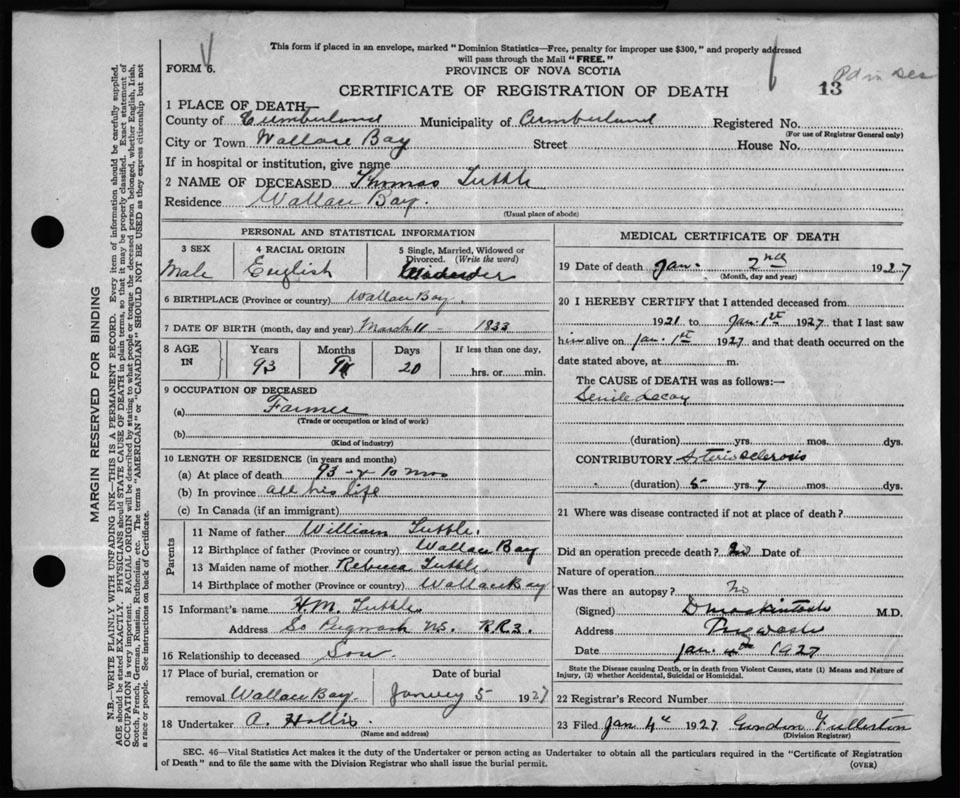 This form if placed in an envelope, marked "Dominion Statistics—Free, penalty for improper use $300," and properly addressed
will pass through the Mail "FREE."
FORM 6.
PROVINCE OF NOVA SCOTIA
CERTIFICATE OF REGISTRATION OF DEATH
13
1 PLACE OF DEATH—
County of Cumberland Municipality of Cumberland Registered No.
(For use of Registrar General only)
City or Town Wallace Bay Street House No.
If in hospital or institution, give name
2 NAME OF DECEASED Thomas Tuttle
Residence Wallace Bay.
(Usual place of abode)
PERSONAL AND STATISTICAL INFORMATION
3 SEX 4 RACIAL ORIGIN 5 Single, Married, Widowed or
Divorced. (Write the word)
Male English Widower
6 BIRTHPLACE (Province or country) Wallace Bay.
7 DATE OF BIRTH (month, day and year) March 11 - 1833
8 AGE IN Years Months Days If less than one day,
93 20 hrs. or min.
9 OCCUPATION OF DECEASED
(a) Farmer
(Trade or occupation or kind of work)
(b)
(Kind of industry)
10 LENGTH OF RESIDENCE (in years and months)
(a) At place of death 93 - y 10 mos
(b) In province all his life
(c) In Canada (if an immigrant)
Parents
11 Name of father William Tuttle.
12 Birthplace of father (Province or country) Wallace Bay
13 Maiden name of mother Rebecca Tuttle
14 Birthplace of mother (Province or country) Wallace Bay
15 Informant's name H.M. Tuttle
Address So Pugwash N.S. R.R.3.
16 Relationship to deceased Son
17 Place of burial, cremation or Date of burial
removal Wallace Bay. 5 1927
18 Undertaker A. Hollis.
(Name and address)
MEDICAL CERTIFICATE OF DEATH
19 Date of death Jan. 2nd 1927
(Month, day and year)
20 I HEREBY CERTIFY that I attended deceased from
1921 to Jan. 1st 1927 that I last saw
him alive on Jan. 1st 1927 and that death occurred on the
date stated above, at m.
The CAUSE OF DEATH was as follows:—
Senile decay
(duration) yrs. mos. dys.
CONTRIBUTORY Arteriosclerosis
(duration) 5 yrs. 7 mos. dys.
21 Where was disease contracted if not at place of death?
Did an operation precede death? No Date of
Nature of operation
Was there an autopsy? No
(Signed) D Mackintosh M.D.
Address Pugwash
Date Jan. 4th 1927
State the Disease causing Death, or in death from Violent Causes, state (1) Means and Nature of
Injury, (2) whether Accidental, Suicidal or Homicidal.
22 Registrar's Record Number
23 Filed Jan 4th 1927 Gordon Fullerton
(Division Registrar)
SEC. 46—Vital Statistics Act makes it the duty of the Undertaker or person acting as Undertaker to obtain all the particulars required in the "Certificate of Registration
of Death" and to file the same with the Division Registrar who shall issue the burial permit.
(OVER)
MARGIN RESERVED FOR BINDING
N.B.—WRITE PLAINLY WITH UNFADING INK—THIS IS A PERMANENT RECORD. Every item of information should be carefully supplied.
AGE should be stated EXACTLY. PHYSICIANS should STATE CAUSE OF DEATH in plain terms, so that it may be properly classified. Exact statement of
OCCUPATION is very important. RACIAL ORIGIN will be described by stating to what people or tongue the deceased person belonged, whether English, Irish,
Scotch, French, German, Russian, Ruthenian, etc. The terms "AMERICAN" or "CANADIAN" SHOULD NOT BE USED as they express citizenship but not
a race or people. See instructions on back of Certificate.